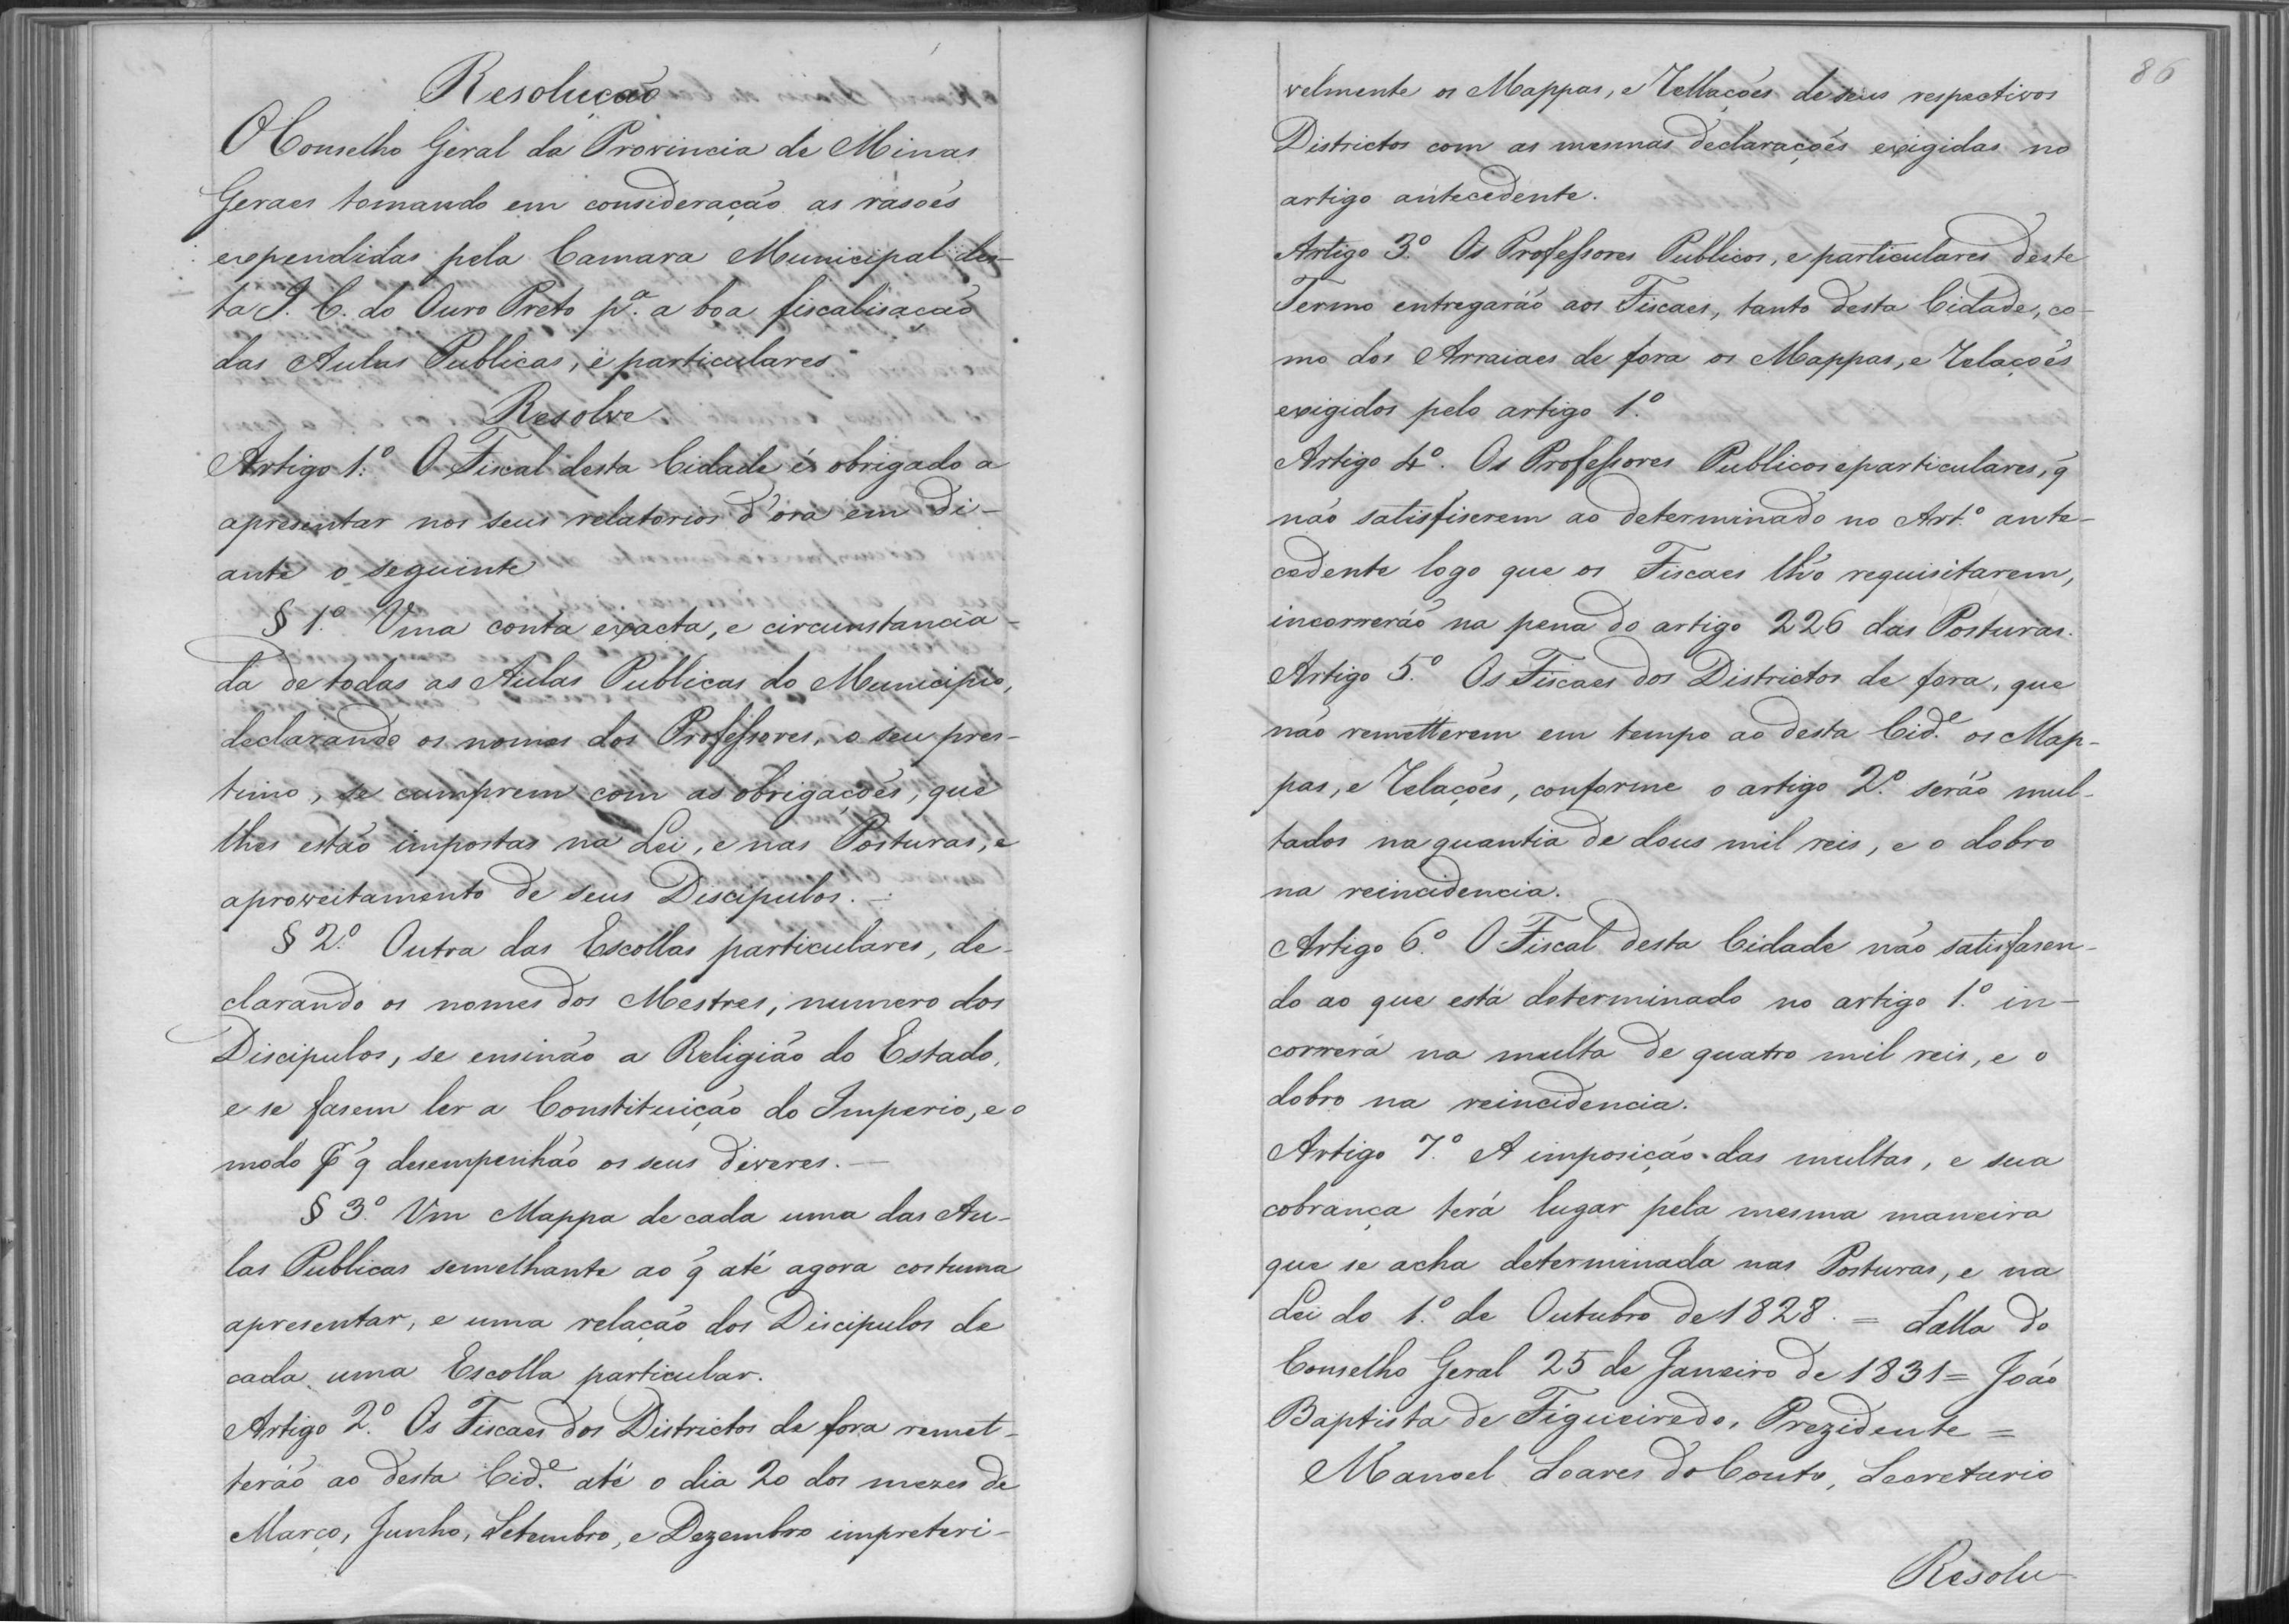 Resolução
O Conselho Geral da Provincia de Minas
Geraes tomando em consideração as rasoẽs
expendidas pela Camara Municipal des-
ta I. C. do Ouro Preto p.ª a boa fiscalisação
das Aulas Publicas, e particulares
Resolve
Artigo 1.º O Fiscal desta Cidade é obrigado a
apresentar nos seus relatorios d'ora em di-
ante o seguinte
§ 1.º Uma conta exacta, e circunstancia-
da de todas as Aulas Publicas do Municipio,
declarando os nomes dos Professores, o seu pres-
timo, se cumprem com as obrigações, que
lhes estão impostas na Lei, e nas Posturas, e
aproveitamento de seus Discipulos.
§ 2.º Outra das Escollas particulares, de-
clarando os nomes dos Mestres, numero dos
Discipulos, se ensinão a Religião do Estado,
e se fasem ler a Constituição do Imperio, e o
modo p̃ q̃ desempenhão os seus deveres.—
§ 3.º Um Mappa de cada uma das Au-
las Publicas semelhante ao q̃ até agora costuma
apresentar, e uma relação dos Discipulos de
cada uma Escolla particular.
Artigo 2.º Os Fiscaes dos Districtos de fora remet-
terão ao desta Cid.e até o dia 20 dos mezes de
Março, Junho, Setembro, e Dezembro impreteri-
86
velmente os Mappas, e Rellações de seus respectivos
Districtos com as mesmas declarações exigidas no
artigo antecedente.
Artigo 3.º Os Professores Publicos, e particulares deste
Termo entregarão aos Fiscaes, tanto desta Cidade, co-
mo dos Arraiaes de fora os Mappas, e Relações
exigidos pelo artigo 1.º
Artigo 4.º Os Professores Publicos e particulares, q̃
não satisfiserem ao determinado no Art.º ante-
cedente logo que os Fiscaes lh'o requisitarem,
incorrerão na pena do artigo 226 das Posturas.
Artigo 5.º Os Fiscaes dos Districtos de fora, que
não remetterem em tempo ao desta Cid.e os Map-
pas, e Relações, conforme o artigo 2.º serão mul-
tados na quantia de dous mil reis, e o dobro
na reincidencia.
Artigo 6.º O Fiscal desta Cidade não satisfasen-
do ao que está determinado no artigo 1.º in-
correrá na multa de quatro mil reis, e o
dobro na reincidencia.
Artigo 7.º A imposição das multas, e sua
cobrança terá lugar pela mesma maneira
que se acha determinada nas Posturas, e na
Lei do 1.º de Outubro de 1828. = Salla do
Conselho Geral 25 de Janeiro de 1831 = João
Baptista de Figueiredo, Prezidente =
Manoel Soares do Couto, Secretario
Resolu-